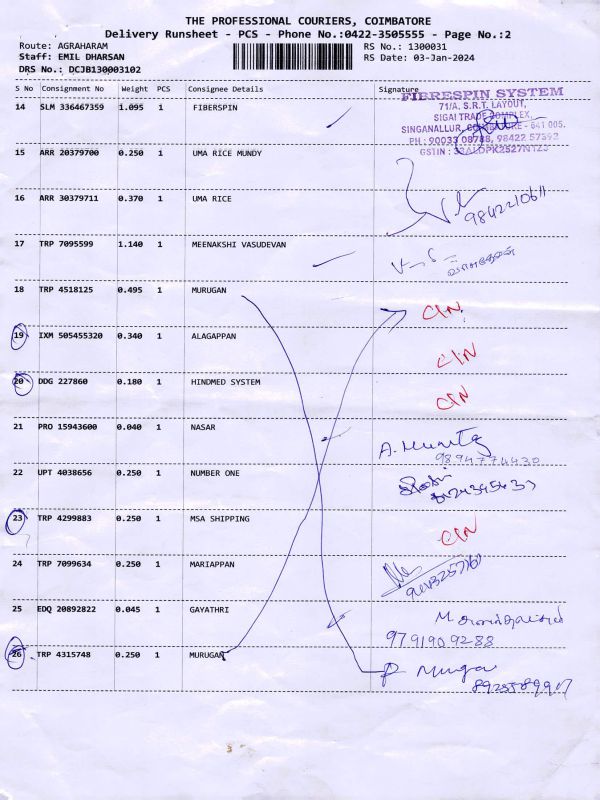 THE PROFESSIONAL COURIERS, COIMBATORE
Delivery Runsheet - PCS - Phone No.:0422-3505555 - Page No.:2
Route: AGRAHARAM RS No.: 1300031
Staff: EMIL DHARSAN RS Date: 03-Jan-2024
DRS No.: DCJB130003102
S No Consignment No Weight PCS Consignee Details Signature
FIBRESPIN SYSTEM
14 SLM 336467359 1.095 1 FIBERSPIN
71/A. S.R.T. LAYOUT,
SIGAI TRADE COMPLEX,
SINGANALLUR, COIMBATORE - 641 005.
PH : 90033 08788, 98422 57592
GSTIN : 33ALDPK2527N1Z3
15 ARR 20379700 0.250 1 UMA RICE MUNDY
16 ARR 30379711 0.370 1 UMA RICE
9842210611
17 TRP 7095599 1.140 1 MEENAKSHI VASUDEVAN
18 TRP 4518125 0.495 1 MURUGAN
C/N
19 IXM 505455320 0.340 1 ALAGAPPAN
C/N
20 DDG 227860 0.180 1 HINDMED SYSTEM
C/N
21 PRO 15943600 0.040 1 NASAR
A.
9894774430
22 UPT 4038656 0.250 1 NUMBER ONE
23 TRP 4299883 0.250 1 MSA SHIPPING
C/N
24 TRP 7099634 0.250 1 MARIAPPAN
25 EDQ 20892822 0.045 1 GAYATHRI
M.
9791909288
26 TRP 4315748 0.250 1 MURUGAN
P Muruga
3